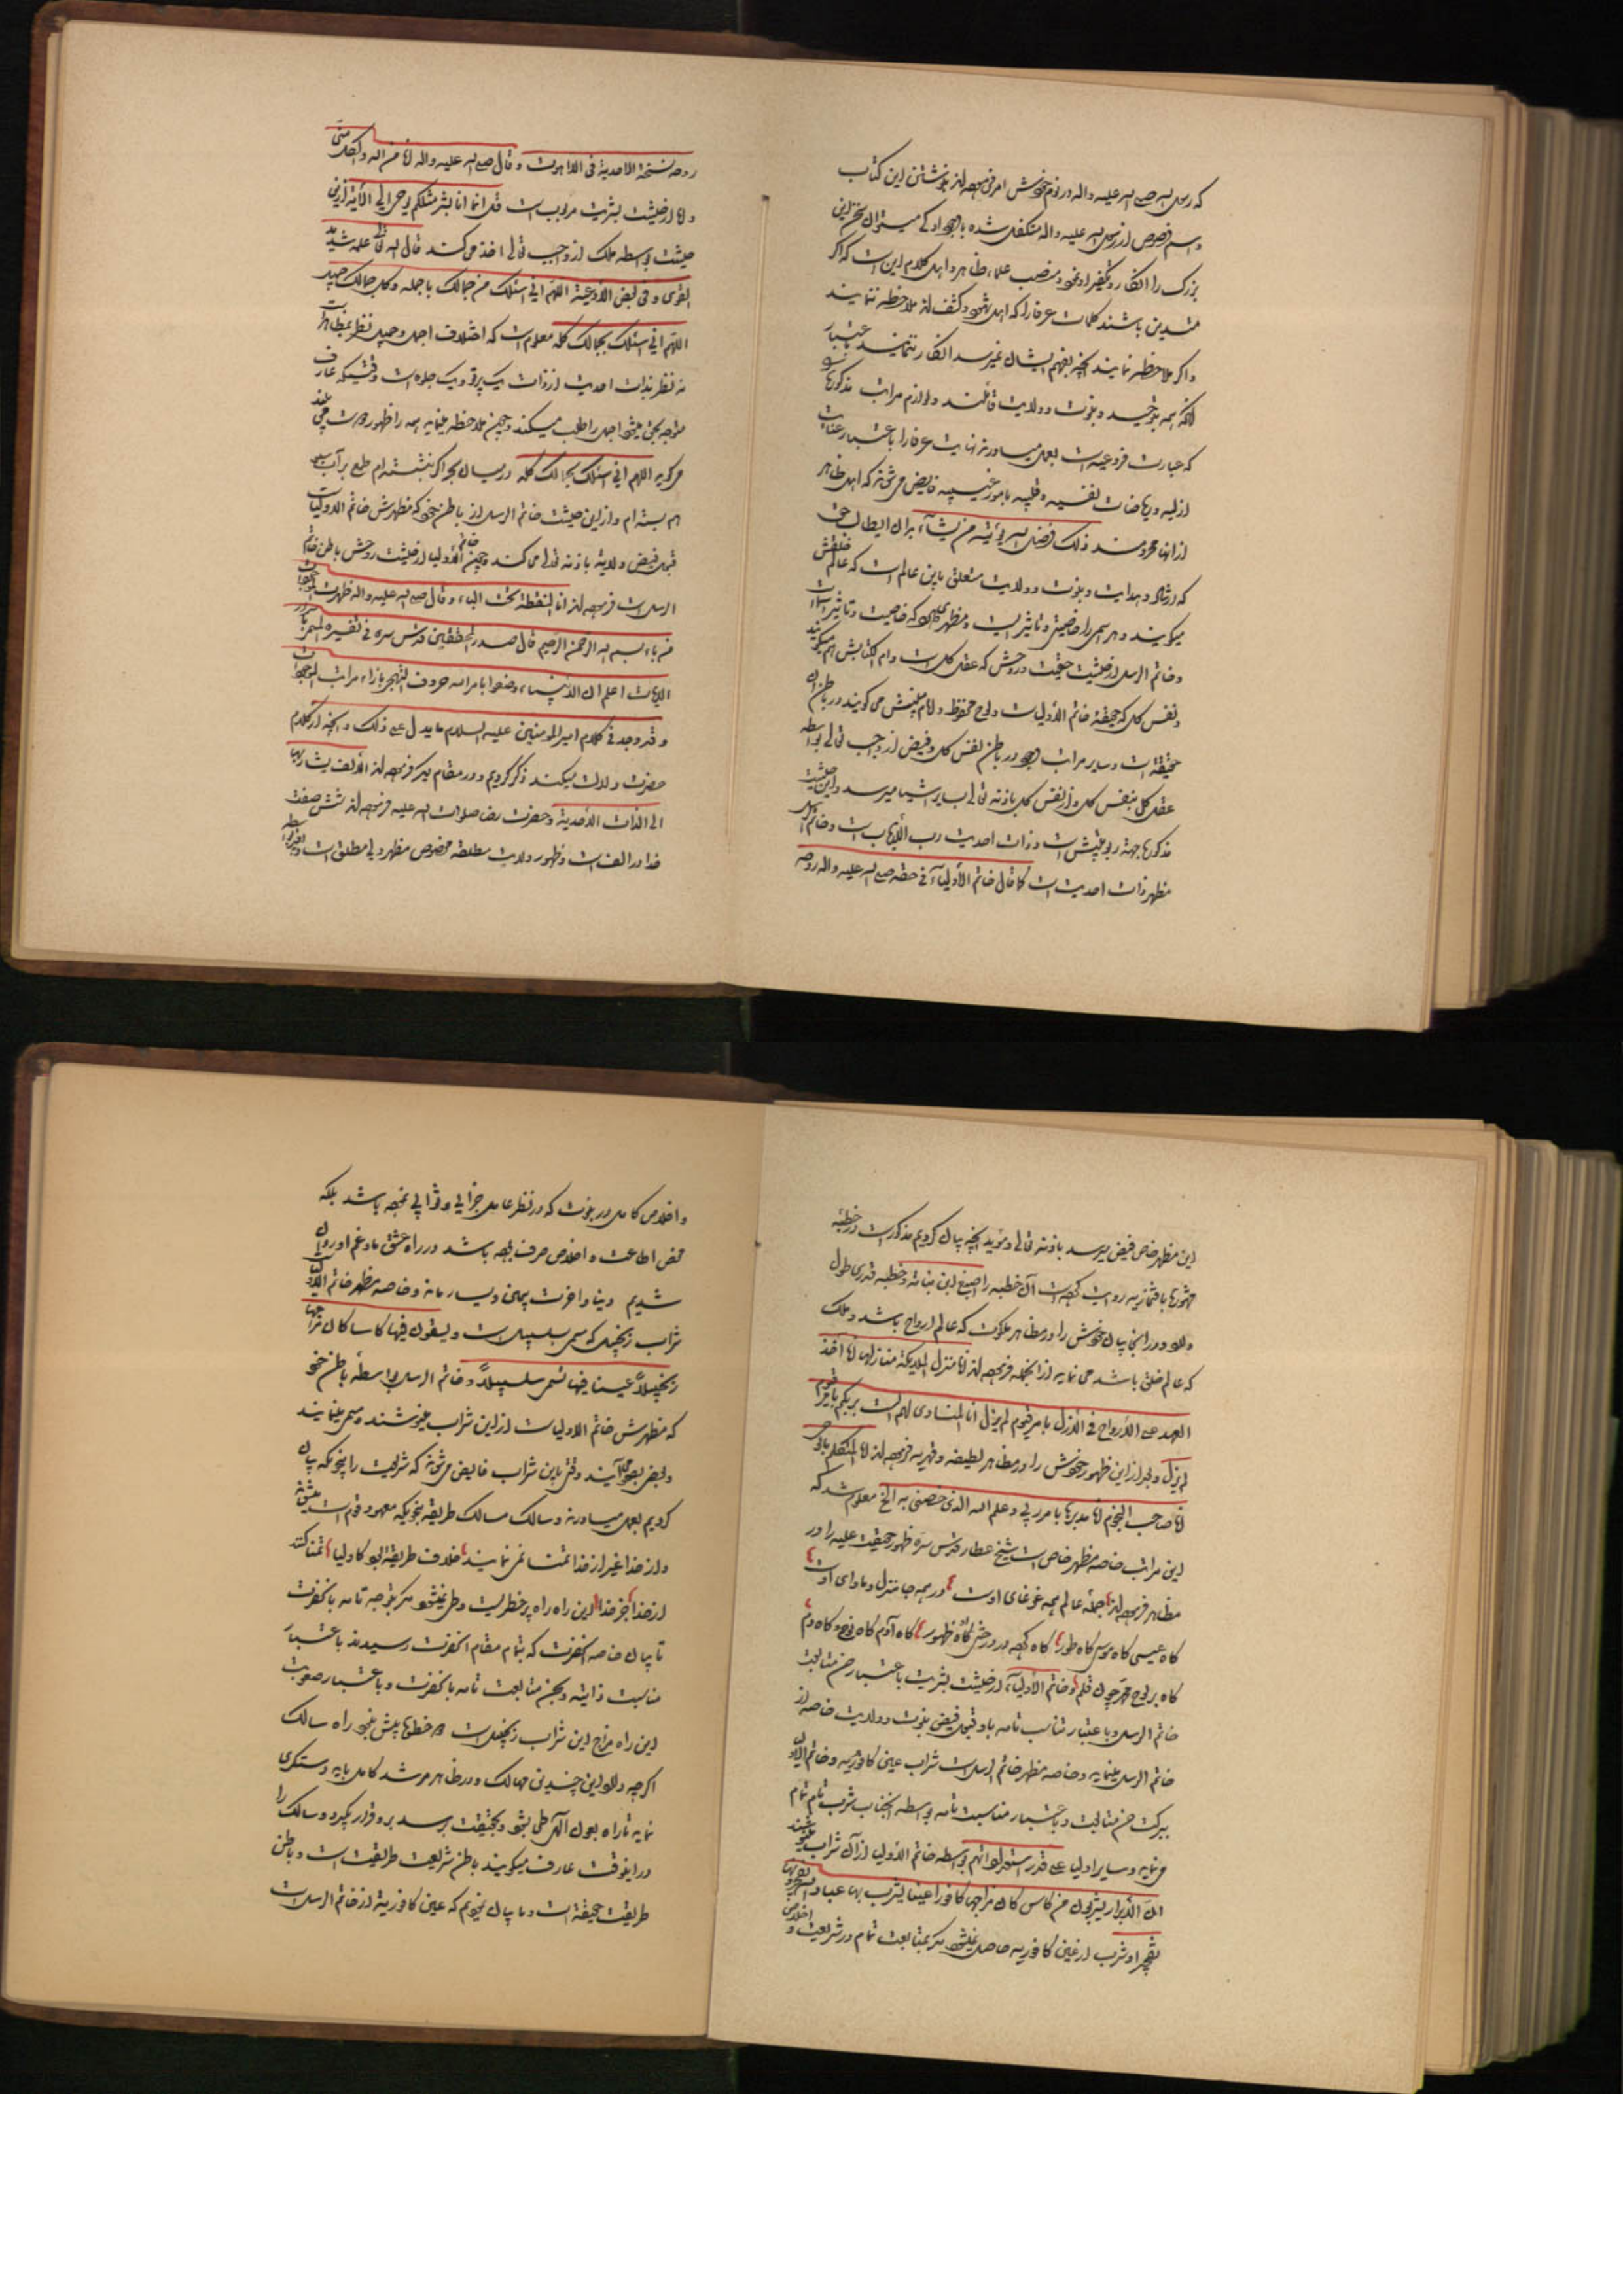 که رسول الله صلی الله علیه واله در نوم خویش امر فرموده‌اند بنوشتن این کتاب
واسم فصوص از رسول الله علیه واله متکفل شده با وجود او کی میتوان سخن این
بزرگ را انکار و تکفیر او نمود و منصب علماء ظاهر و اهل کلام این است که اگر
متدین باشند کلمات عرفا را که اهل شهود و کشف‌اند ملاحظه ننمایند
و اگر ملاحظه نمایند آنچه بفهم ایشان نمیرسد انکار ننمایند باعتبار
آنکه همه بتوحید و نبوت و ولایت قائلند و لوازم مراتب مذکوره
که عبارت فروعیه است بعمل میاورند نهایت عرفا را باعتبار عنایات
ازلیه و ریاضات نفسیه و قلبیه بامور غیبیه فایض می‌شوند که اهل ظاهر
از آنها محرومند ذلک فضل الله یؤتیه من یشآء بدان ایطالب حق
که ارشاد و هدایت و نبوت و ولایت متعلق باین عالم است که عالم خلقش
میگویند و هر اسمی را خاصیتی و تاثیر است و مظهر که خاصیت و تاثیر
و خاتم الرسل از حیثیت حقیقت و روحش که عقل کل است و ام الکتابش هم میگویند
و نفس کل که حقیقة خاتم الأولیاست و لوح محفوظ و امام مبینش می گویند در باطن آن
حقیقة است و سایر مراتب وجود در باطن نفس کل و فیض از واجب تعالی بواسطه
عقل کل بنفس کل و از نفس کل باذنه تعالی بسایر اشیا میرسد و این حیثیت
مذکوره جهة ربوبیتش است و ذات احدیت رب الأرباب است و خاتم الرسل
مظهر ذات احدیت است کما قال خاتم الأولیآء فی حقه صلی الله علیه واله روحه
روحه نسخة الاحدیة فی اللاهوت و قال صلی الله علیه واله انا من الله والکل منی
و اما از حیثیت بشریت مربوب است قل انما انا بشر مثلکم یوحی الی الآیة ازین
حیثیت بواسطه ملک از واجب تعالی اخذ می کند قال الله تعالی علمه شدید
القوی و فی بعض الأدعیة اللهم انی اسئلک من جمالک باجمله وکل جمالک جمیل
اللهم انی اسئلک بجمالک کله معلوم است که اختلاف اجمل و جمیل نظر بمظاهر است
نه نظر بذات احدیت از ذات یک پرتو و یک جلوه است وقتیکه عارف
متوجه بحق میشود اجمل را طلب میکند و چون ملاحظه مینماید همه را ظهور
می گوید اللهم انی اسئلک بجمالک کله در میان بحر اگر بنشسته‌ام طمع بر آب سبو
هم بسته‌ام و از این حیثیت خاتم الرسل از باطن خود که مظهرش خاتم الاولیاست
قبول فیض ولایة باذنه تعالی می کند و چون خاتم الأولیا از حیثیت روحش باطن خاتم
الرسل است فرموده‌اند انا النقطة تحت الباء و قال صلی الله علیه واله ظهرت الموجودات
من باء بسم الله الرحمن الرحیم قال صدر المحققین قدس سره فی تفسیره
الالهیات اعلم ان الأنبیاء وضعوا بامر الله حروف التهجی بازاء مراتب الموجودات
و قد وجد فی کلام امیر المؤمنین علیه السلام ما یدل علی ذلک و آنچه از کلام
حضرت دلالت میکند ذکر کردیم و در مقام دیگر فرموده‌اند الألف یشار بها
الی الذات الأحدیة و حضرت رضا صلوات الله علیه فرموده‌اند شش صفت
خدا در الف است و ظهور ولایت مطلقه مخصوص مظهر ولی مطلق است
این مظهر خاص فیض میرسد باذنه تعالی و مؤید آنچه بیان کردیم مذکور است در خطبه
روایت کرده است آن خطبه را اصبغ ابن نباته و خطبه قدری طول
دارد و در آنجا بیان خویش را در مظاهر ملکوت که عالم ارواح باشد و ملک
که عالم خلق باشد می نماید از آنجمله فرموده‌اند انا منزل الملایکة منازلها انا آخذ
العهد علی الأرواح فی الأزل بامر قیوم لم یزل انا المنادی لهم الست بربکم بامر قیوم
لم یزل و بعد از این ظهور خویش را در مظاهر لطیفه و قهریه فرموده‌اند انا المتکلم بالوحی
انا صاحب النجوم انا مدبرها بامر ربی و علم الله الذی خصنی به الخ معلوم شد که
این مراتب خاصه مظهر خاص است شیخ عطار قدس سره ظهور حقیقت علیه را در
مظاهر فرموده‌اند جملهٔ عالم همه غوغای اوست در همه جا منزل و ماوای اوست
گاه عیسی گاه موسی گاه طور گاه کرده در درختی او ظهور گاه آدم گاه نوح و گاه دم
گاه بر لوح مهر چون قلم و خاتم الأولیآء از حیثیت بشریت باعتبار حسن متابعت
خاتم الرسل و باعتبار تناسب تامه با او قبول فیض نبوت و ولایت خاصه از
خاتم الرسل مینماید و خاصه مظهر خاتم الرسل است شراب عین کافوریه و خاتم الأولیا
ببرکت حسن متابعت و باعتبار مناسبت تامه بواسطه آنجناب شرب تام تمام
می نماید و سایر اولیا علی قدر استعداداتهم بواسطه خاتم الأولیا از آن شراب مینوشند
ان الأبرار یشربون من کاس کان مزاجها کافورا عینا یشرب بها عباد الله یفجرونها
تفجیرا و شرب از عین کافوریه حاصل نمیشود مگر بمتابعت تمام در شریعت و اخلاص
و اخلاص کامل در نبوت که در نظر عامل جزایی و ثوابی نبوده باشد بلکه
محض اطاعت و اخلاص صرف بوده باشد در راه عشق ما و غم او روان
شدیم دینا و آخرت بیمین و یسار ماند و خاصه مظهر خاتم الأولیا
شراب زنجبیل که مسمی بسبیل است و یسقون فیها کاسا کان مزاجها
زنجبیلاً عینا فیها تسمی سلسبیلاً و خاتم الرسل بواسطه باطن خود
که مظهرش خاتم الاولیاست از این شراب مینوشند و مسمی مینمایند
و بعض بصحو آیند وقتی باین شراب فایض می‌شوند که شریعت را بنحویکه بیان
کردیم بعمل میاورند و سالک مسالک طریقة بنحویکه معهود قوم است میشوند
و از خدا غیر از خدا تمنا نمی نمایند خلاف طریقة بود کاولیا تمنا کنند
از خدا جز خدا این راه راه پر خطر است و طی نمیشود مگر بتوجه تامه بآنحضرت
تا بیان خاصه آنحضرت که بتمام مقام آنحضرت رسیدند باعتبار
مناسبت ذاتیه و بحسن متابعت تامه بآنحضرت و باعتبار صعوبت
این راه مزاج این شراب زنجبیل است و خطرها پیش بنمود راه سالک
اگرچه دارد این چندین مهالک و در ظاهر مرشد کامل باید دستگیری
نماید تا راه بعون الهی طی بشود و بحقیقت برسد برو قرار بگیرد و سالک را
در اینوقت عارف میگویند باطن شریعت طریقت است و باطن
طریقت حقیقة است و ما بیان نمودیم که عین کافوریه از خاتم الرسل است